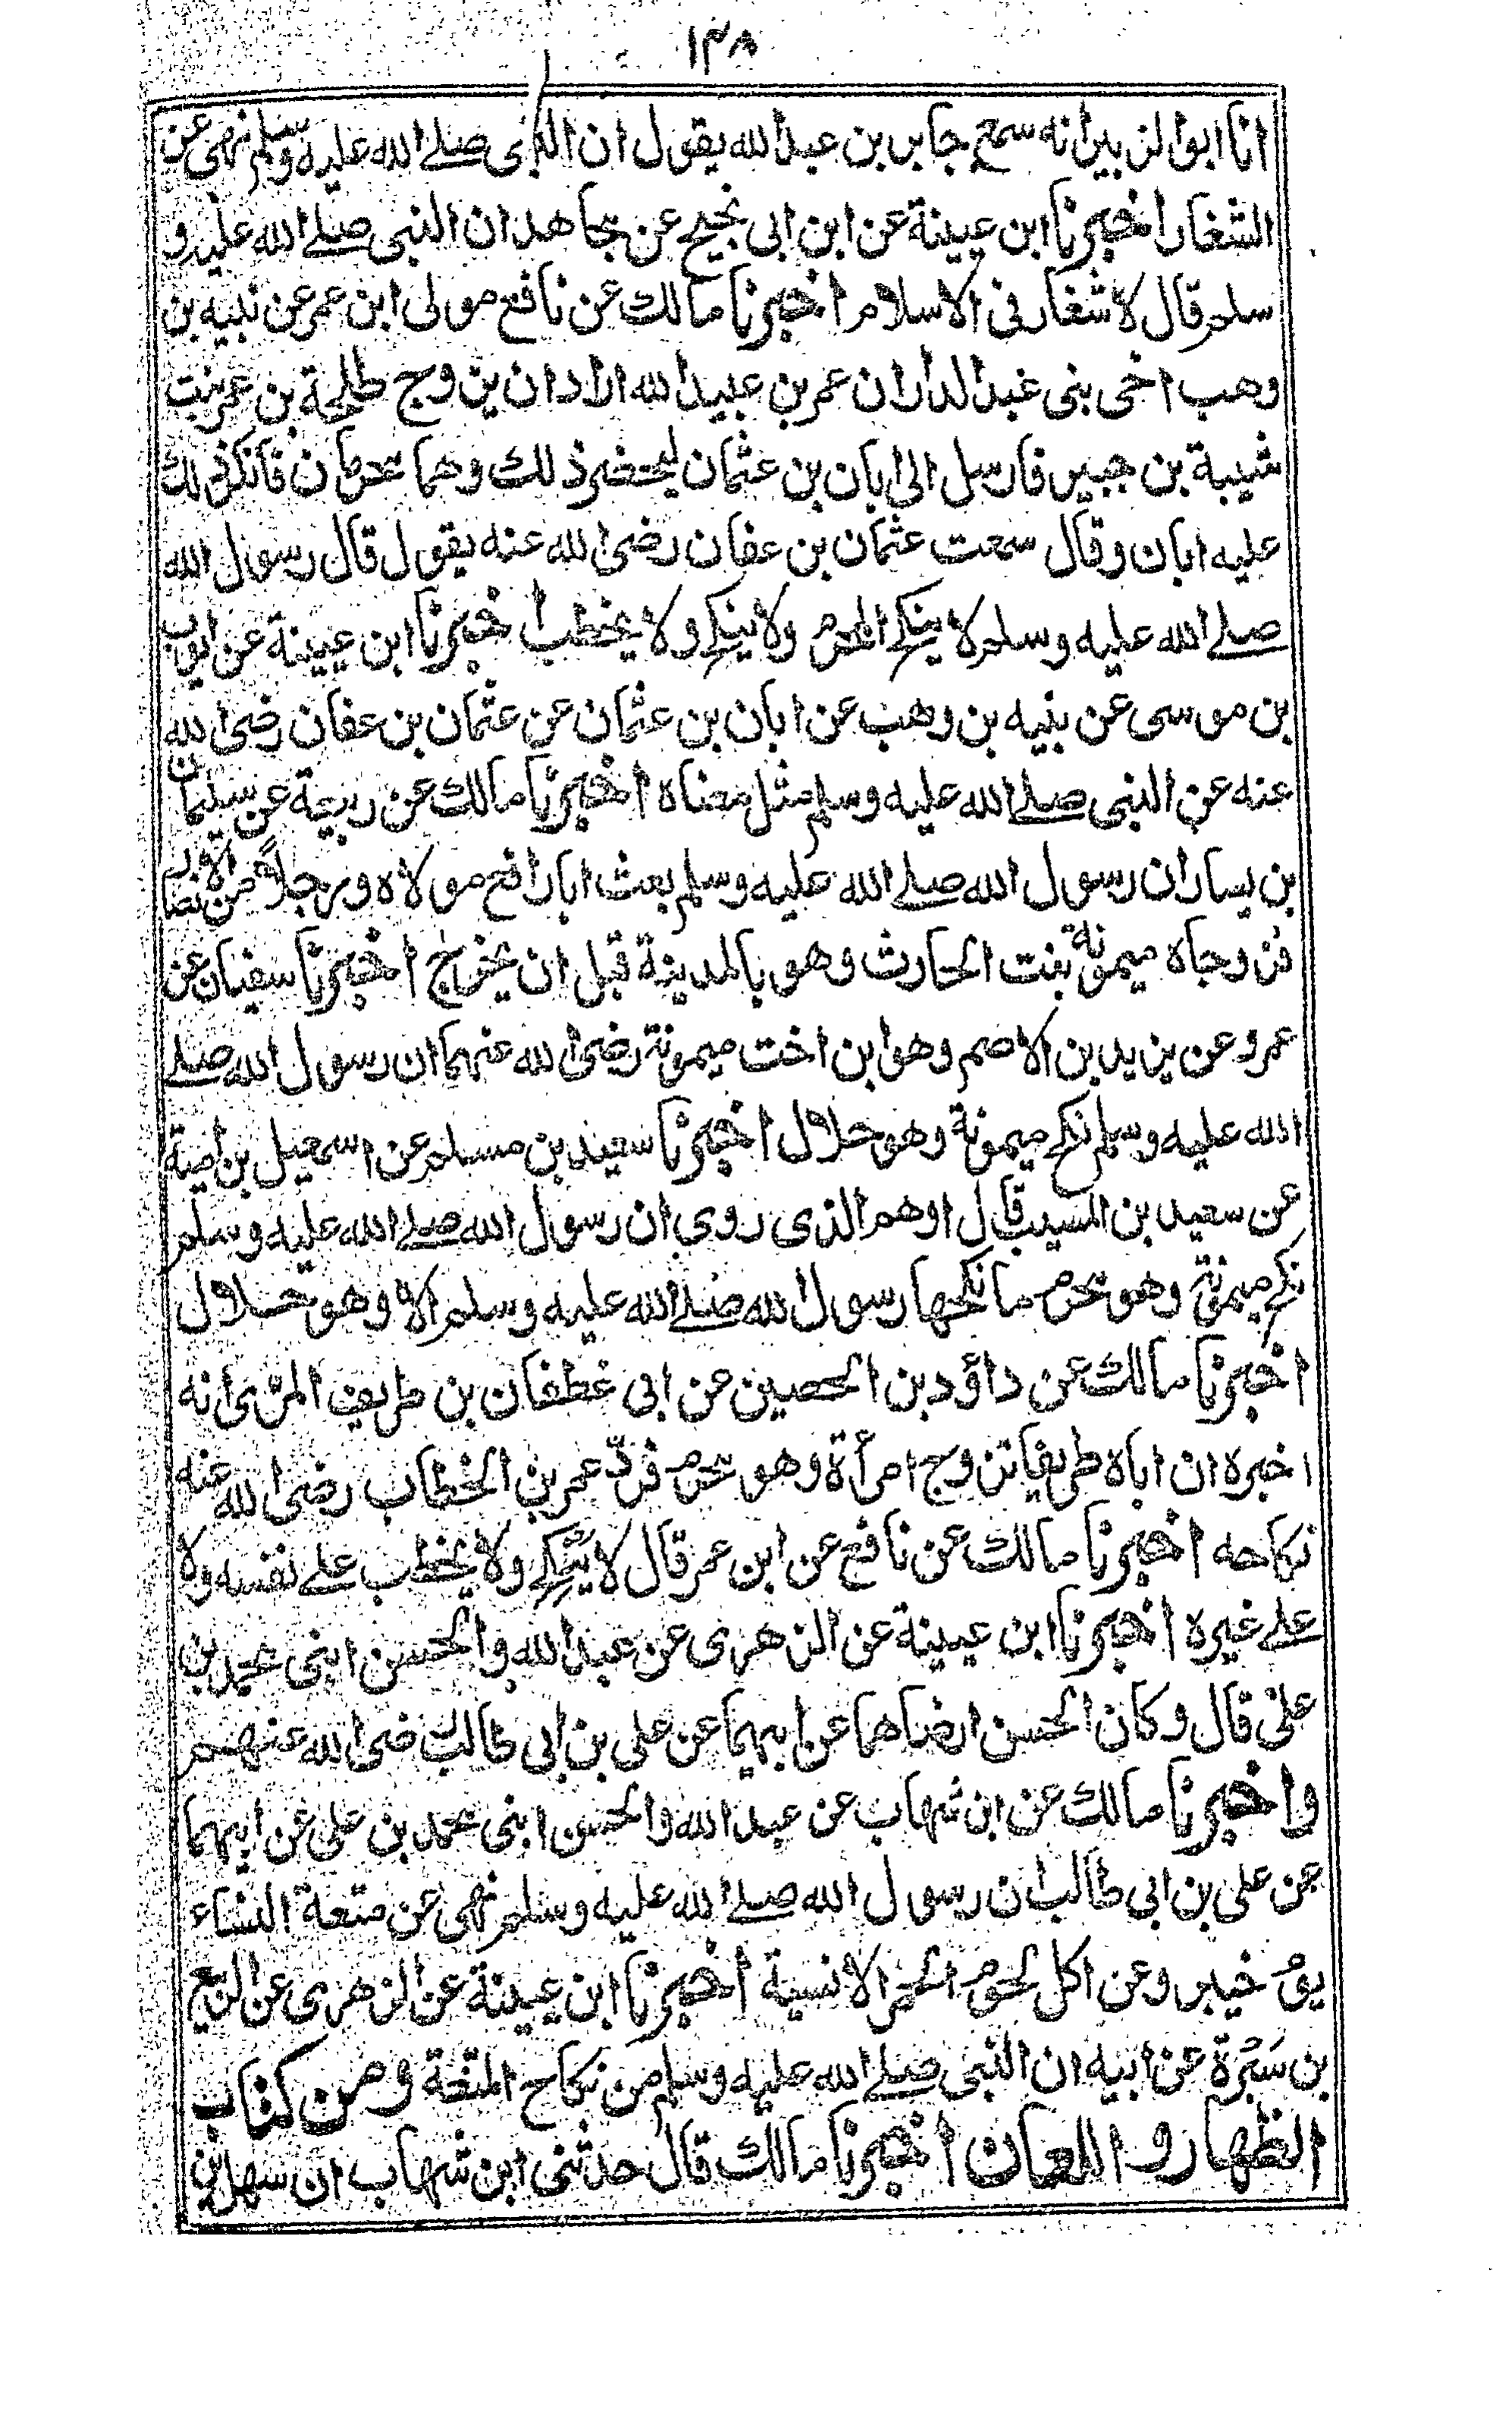 ١٣٨
انا ابو الزبير انه سمع جابر بن عبد الله يقول ان النبى صلے الله عليه وسلم نهى عن
الشغار اخبرنا ابن عيينة عن ابن ابى نجيح عن مجاهد ان النبى صلے الله عليه و
سلم قال لا شغار فى الاسلام اخبرنا مالك عن نافع مولى ابن عمر عن نبيه بن
وهب اخى بنى عبد الدار ان عمر بن عبيد الله اراد ان يزوج طلحة بن عمر بنت
شيبة بن جبير فارسل الى ابان بن عثمان ليحضر ذلك وهما محرمان فانكر ذلك
عليه ابان وقال سمعت عثمان بن عفان رضى الله عنه يقول قال رسول الله
صلے الله عليه وسلم لا ينكح المحرم ولا ينكح ولا يخطب اخبرنا ابن عيينة عن ايوب
بن موسى عن بنيه بن وهب عن ابان بن عثمان عن عثمان بن عفان رضى الله
عنه عن النبى صلے الله عليه وسلم مثل معناه اخبرنا مالك عن ربيعة عن سليمان
بن يسار ان رسول الله صلے الله عليه وسلم بعث ابا رافع مولاه ورجلاً من الانصار
فزوجاه ميمونة بنت الحارث وهو بالمدينة قبل ان يخرج اخبرنا سفيان عن
عمرو عن يزيد بن الاصم وهو ابن اخت ميمونة رضى الله عنهما ان رسول الله صلے
الله عليه وسلم نكح ميمونة وهو حلال اخبرنا سعيد بن مسلم عن اسمعيل بن امية
عن سعيد بن المسيب قال اوهم الذى روى ان رسول الله صلے الله عليه وسلم
نكح ميمونة وهو محرم ما نكحها رسول الله صلے الله عليه وسلم الا وهو حلال
اخبرنا مالك عن داؤد بن الحصين عن ابى غطفان بن طريف المرّى انه
اخبره ان اباه طريفا تزوج امرأة وهو محرم فردّ عمر بن الخطاب رضى الله عنه
نكاحه اخبرنا مالك عن نافع عن ابن عمر قال لا ينكح ولا يخطب علے نفسه ولا
علے غيره اخبرنا ابن عيينة عن الزهرى عن عبد الله والحسن ابنى محمد بن
على قال وكان الحسن ارضاهما عن ابيهما عن على بن ابى طالب رضى الله عنهم
واخبرنا مالك عن ابن شهاب عن عبد الله والحسن ابنى محمد بن على عن ابيهما
عن على بن ابى طالب ان رسول الله صلے الله عليه وسلم نهى عن متعة النساء
يوم خيبر وعن اكل لحوم الحمر الانسية اخبرنا ابن عيينة عن الزهرى عن الربيع
بن سَبْرَة عن ابيه ان النبى صلے الله عليه وسلم من نكاح المتعة ومن كتاب
الظهار واللعان اخبرنا مالك قال حدثنى ابن شهاب ان سهل بن